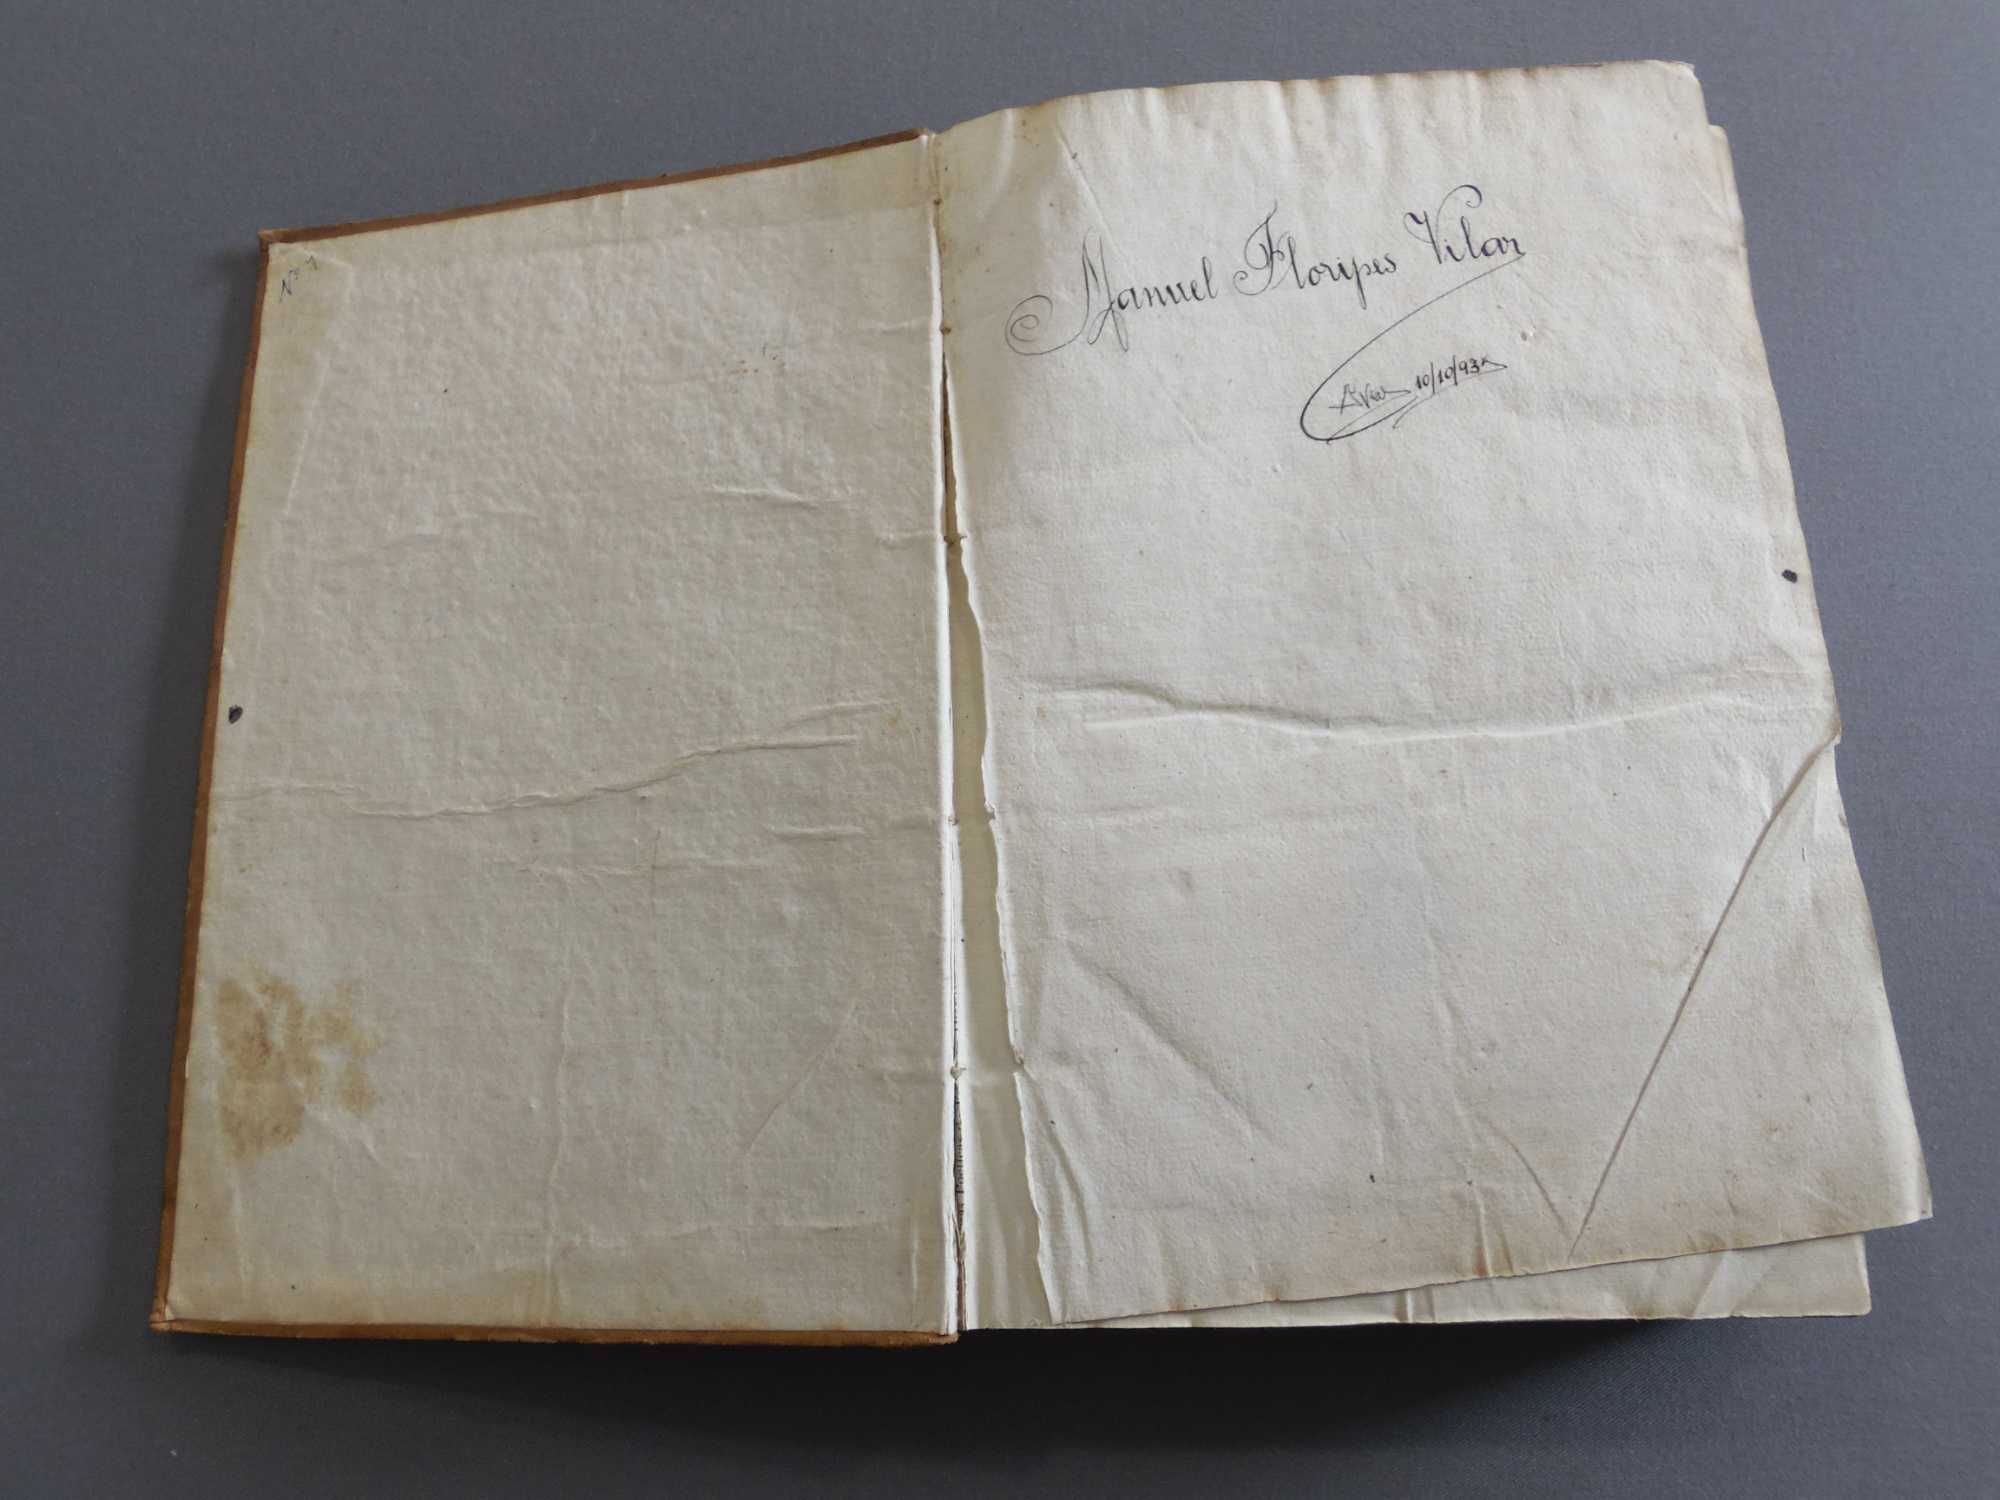 Nº 1
Manuel Floripes Vilar
10/10/93